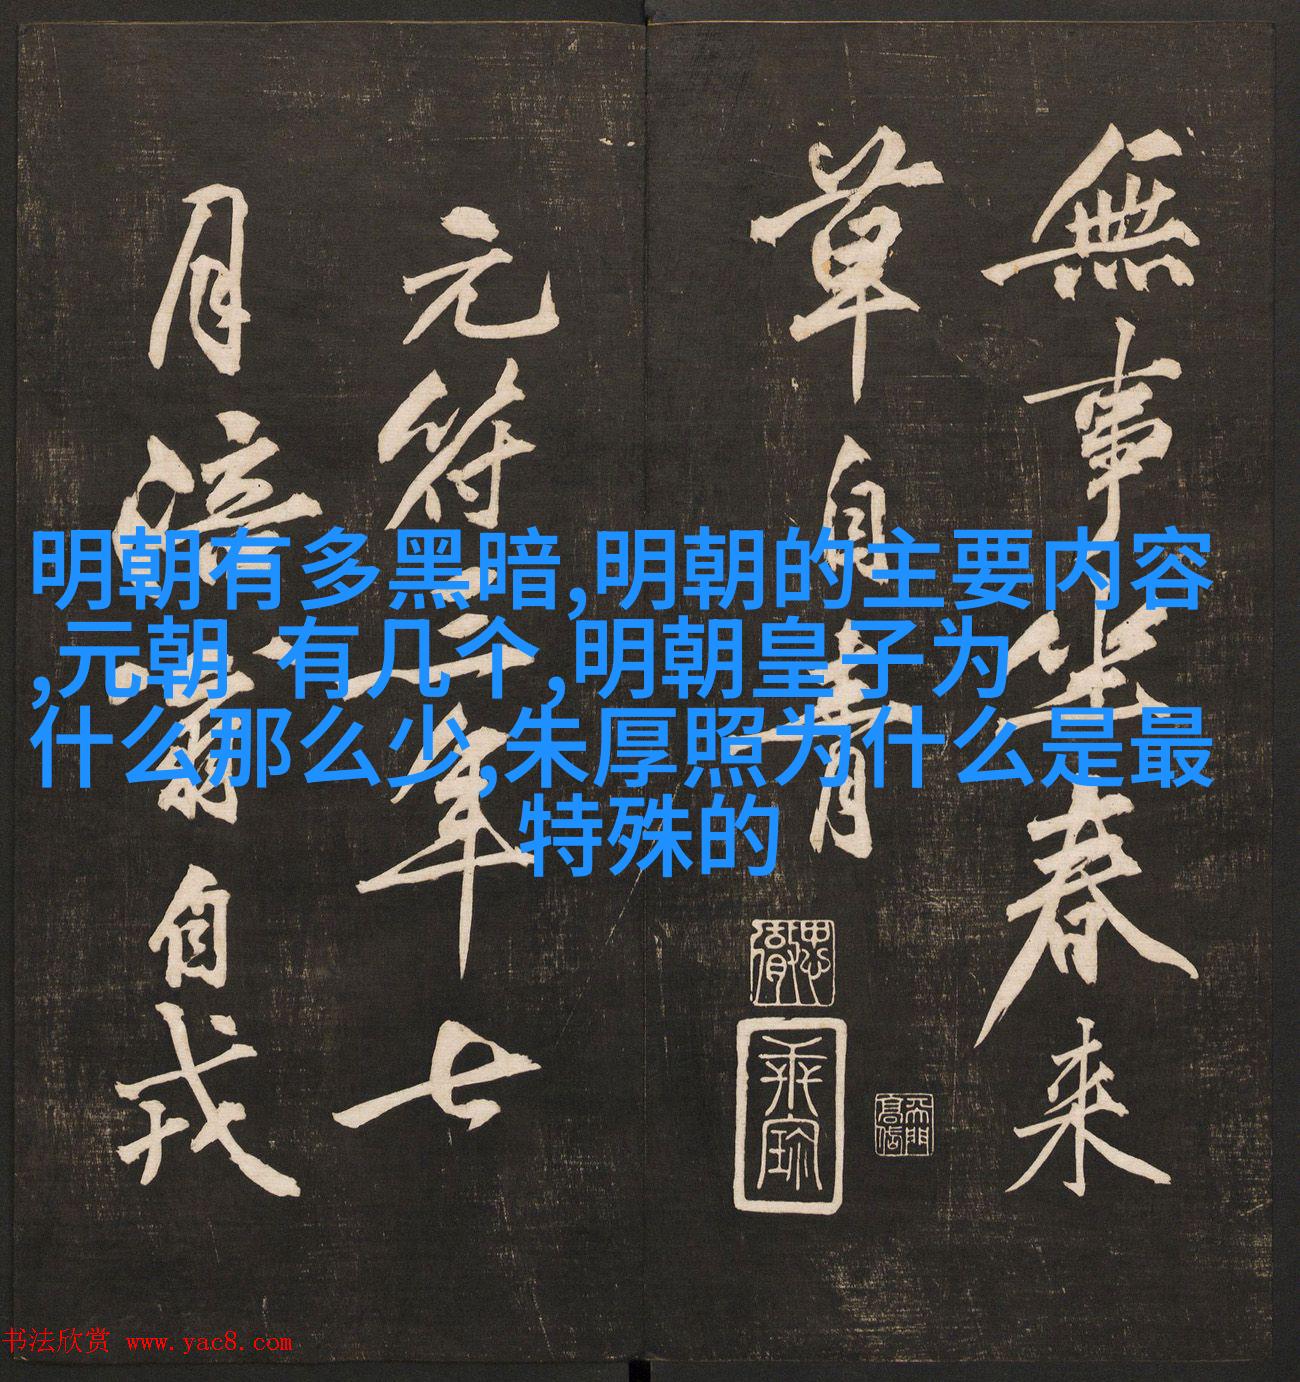 無事坐春来
草自青
元符三年七
月涪翁自戎
明朝有多黑暗,明朝的主要内容
,元朝 有几个,明朝皇子为
什么那么少,朱厚照为什么是最
特殊的
书法欣赏 www.yac8.com